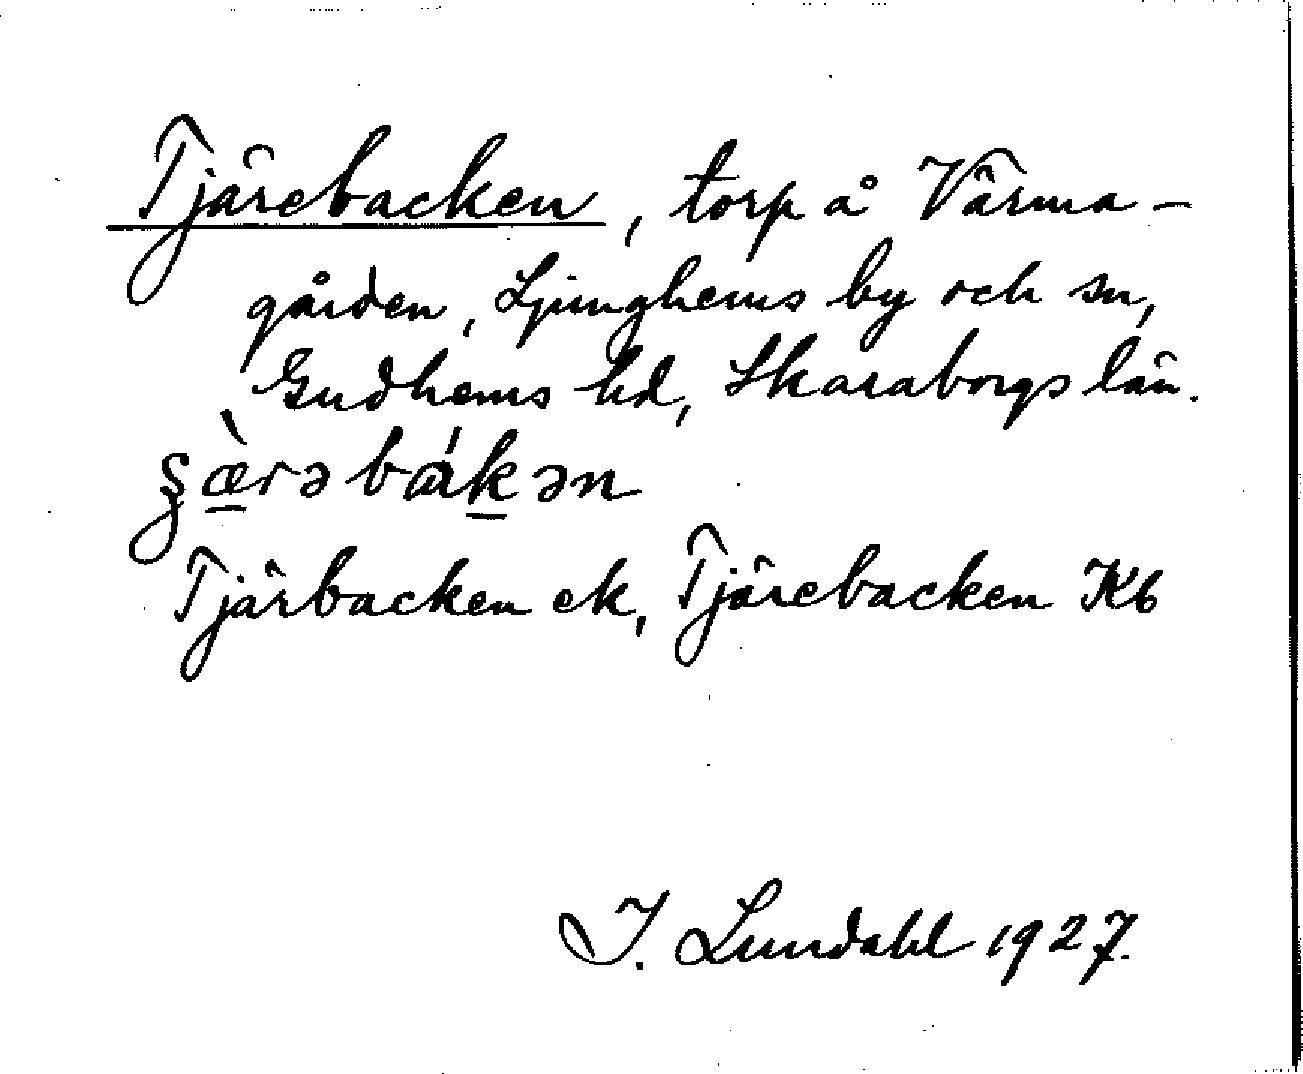 Tjärebacken, torp å Värma-
gården, Ljunghems by och sn,
Gudhems hd, Skaraborgs län.
ʂæ̀rəbákən
Tjärbacken ek, Tjärebacken Kb
I. Lundahl 1927.